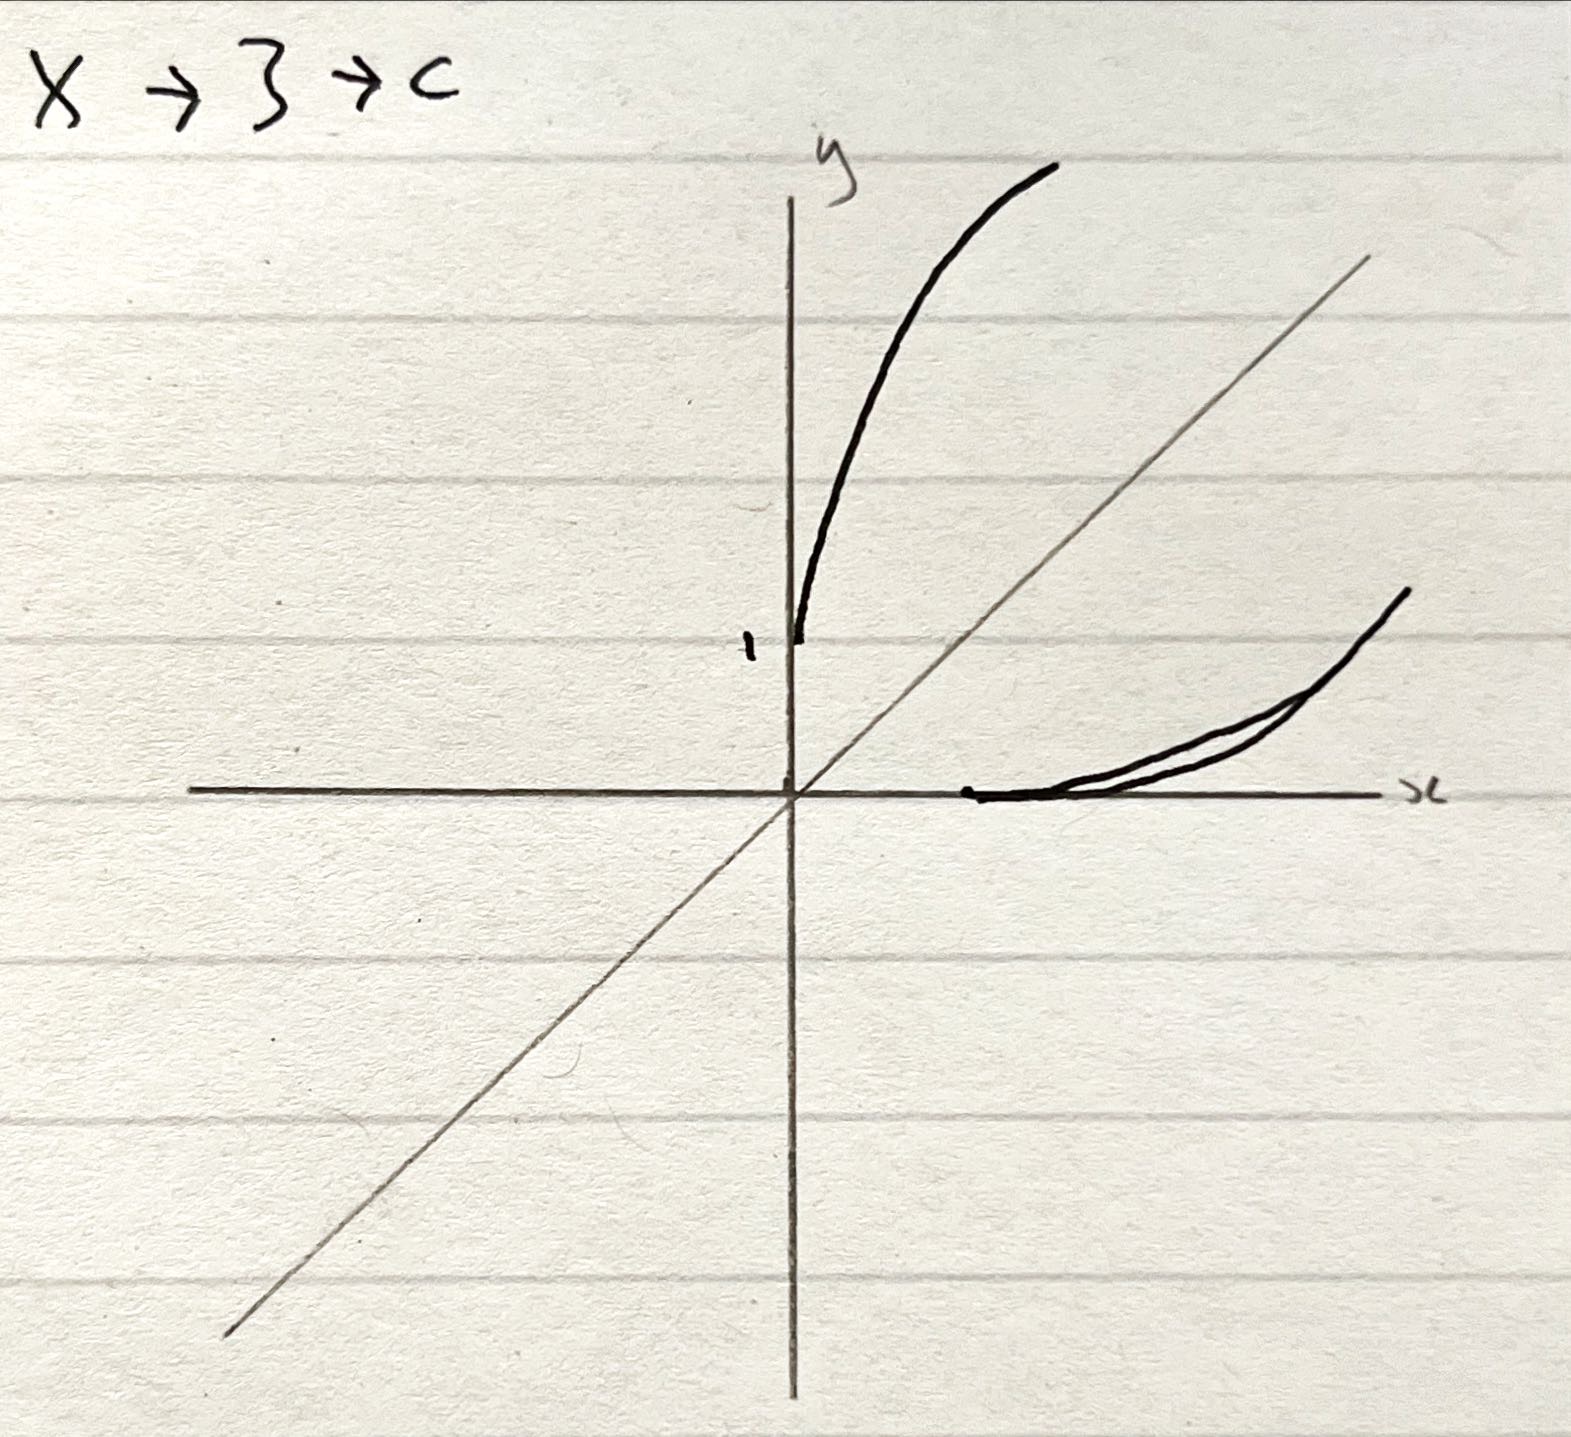 X → 3 → c
y
1
x